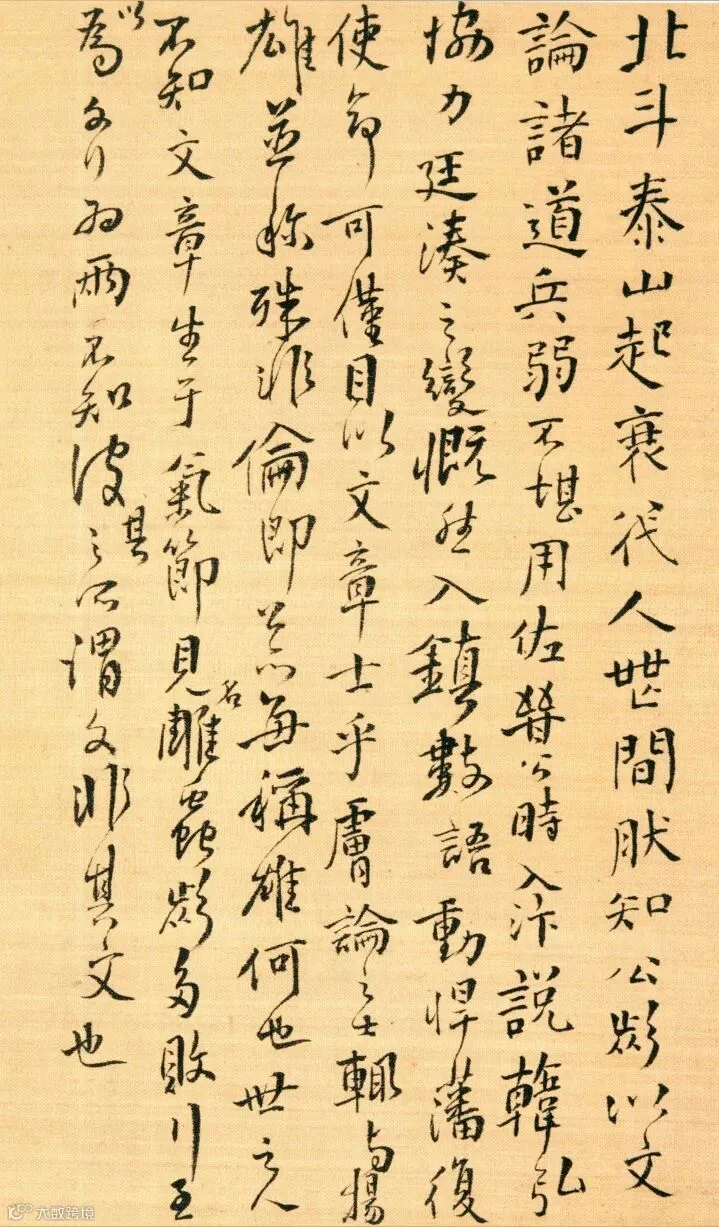 北斗泰山起衰代人世間肰知公類以文
論諸道兵弱不堪用佐晉公時入汴說韓弘
協力廷湊之變慨然入鎮數語動悍藩復
使節可僅目以文章士乎膚論之士輒与揚
雄並称殊非倫即公亦每稱雄何也世之人
不知文章生于氣節見名雕蟲類多敗行至
以為文行為兩不知彼其之所謂文非其文也
大数跨境